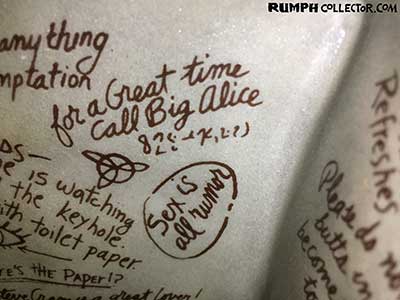 RUMPH COLLECTOR.COM
anything
mptation
for a Great time
Call Big Alice
DS—
e is watching
the keyhole.
ith toilet paper.
Sex is
all rumor
ERE'S THE PAPER!?
is a great lover!
Refreshes
Please do no
butts in
become
to